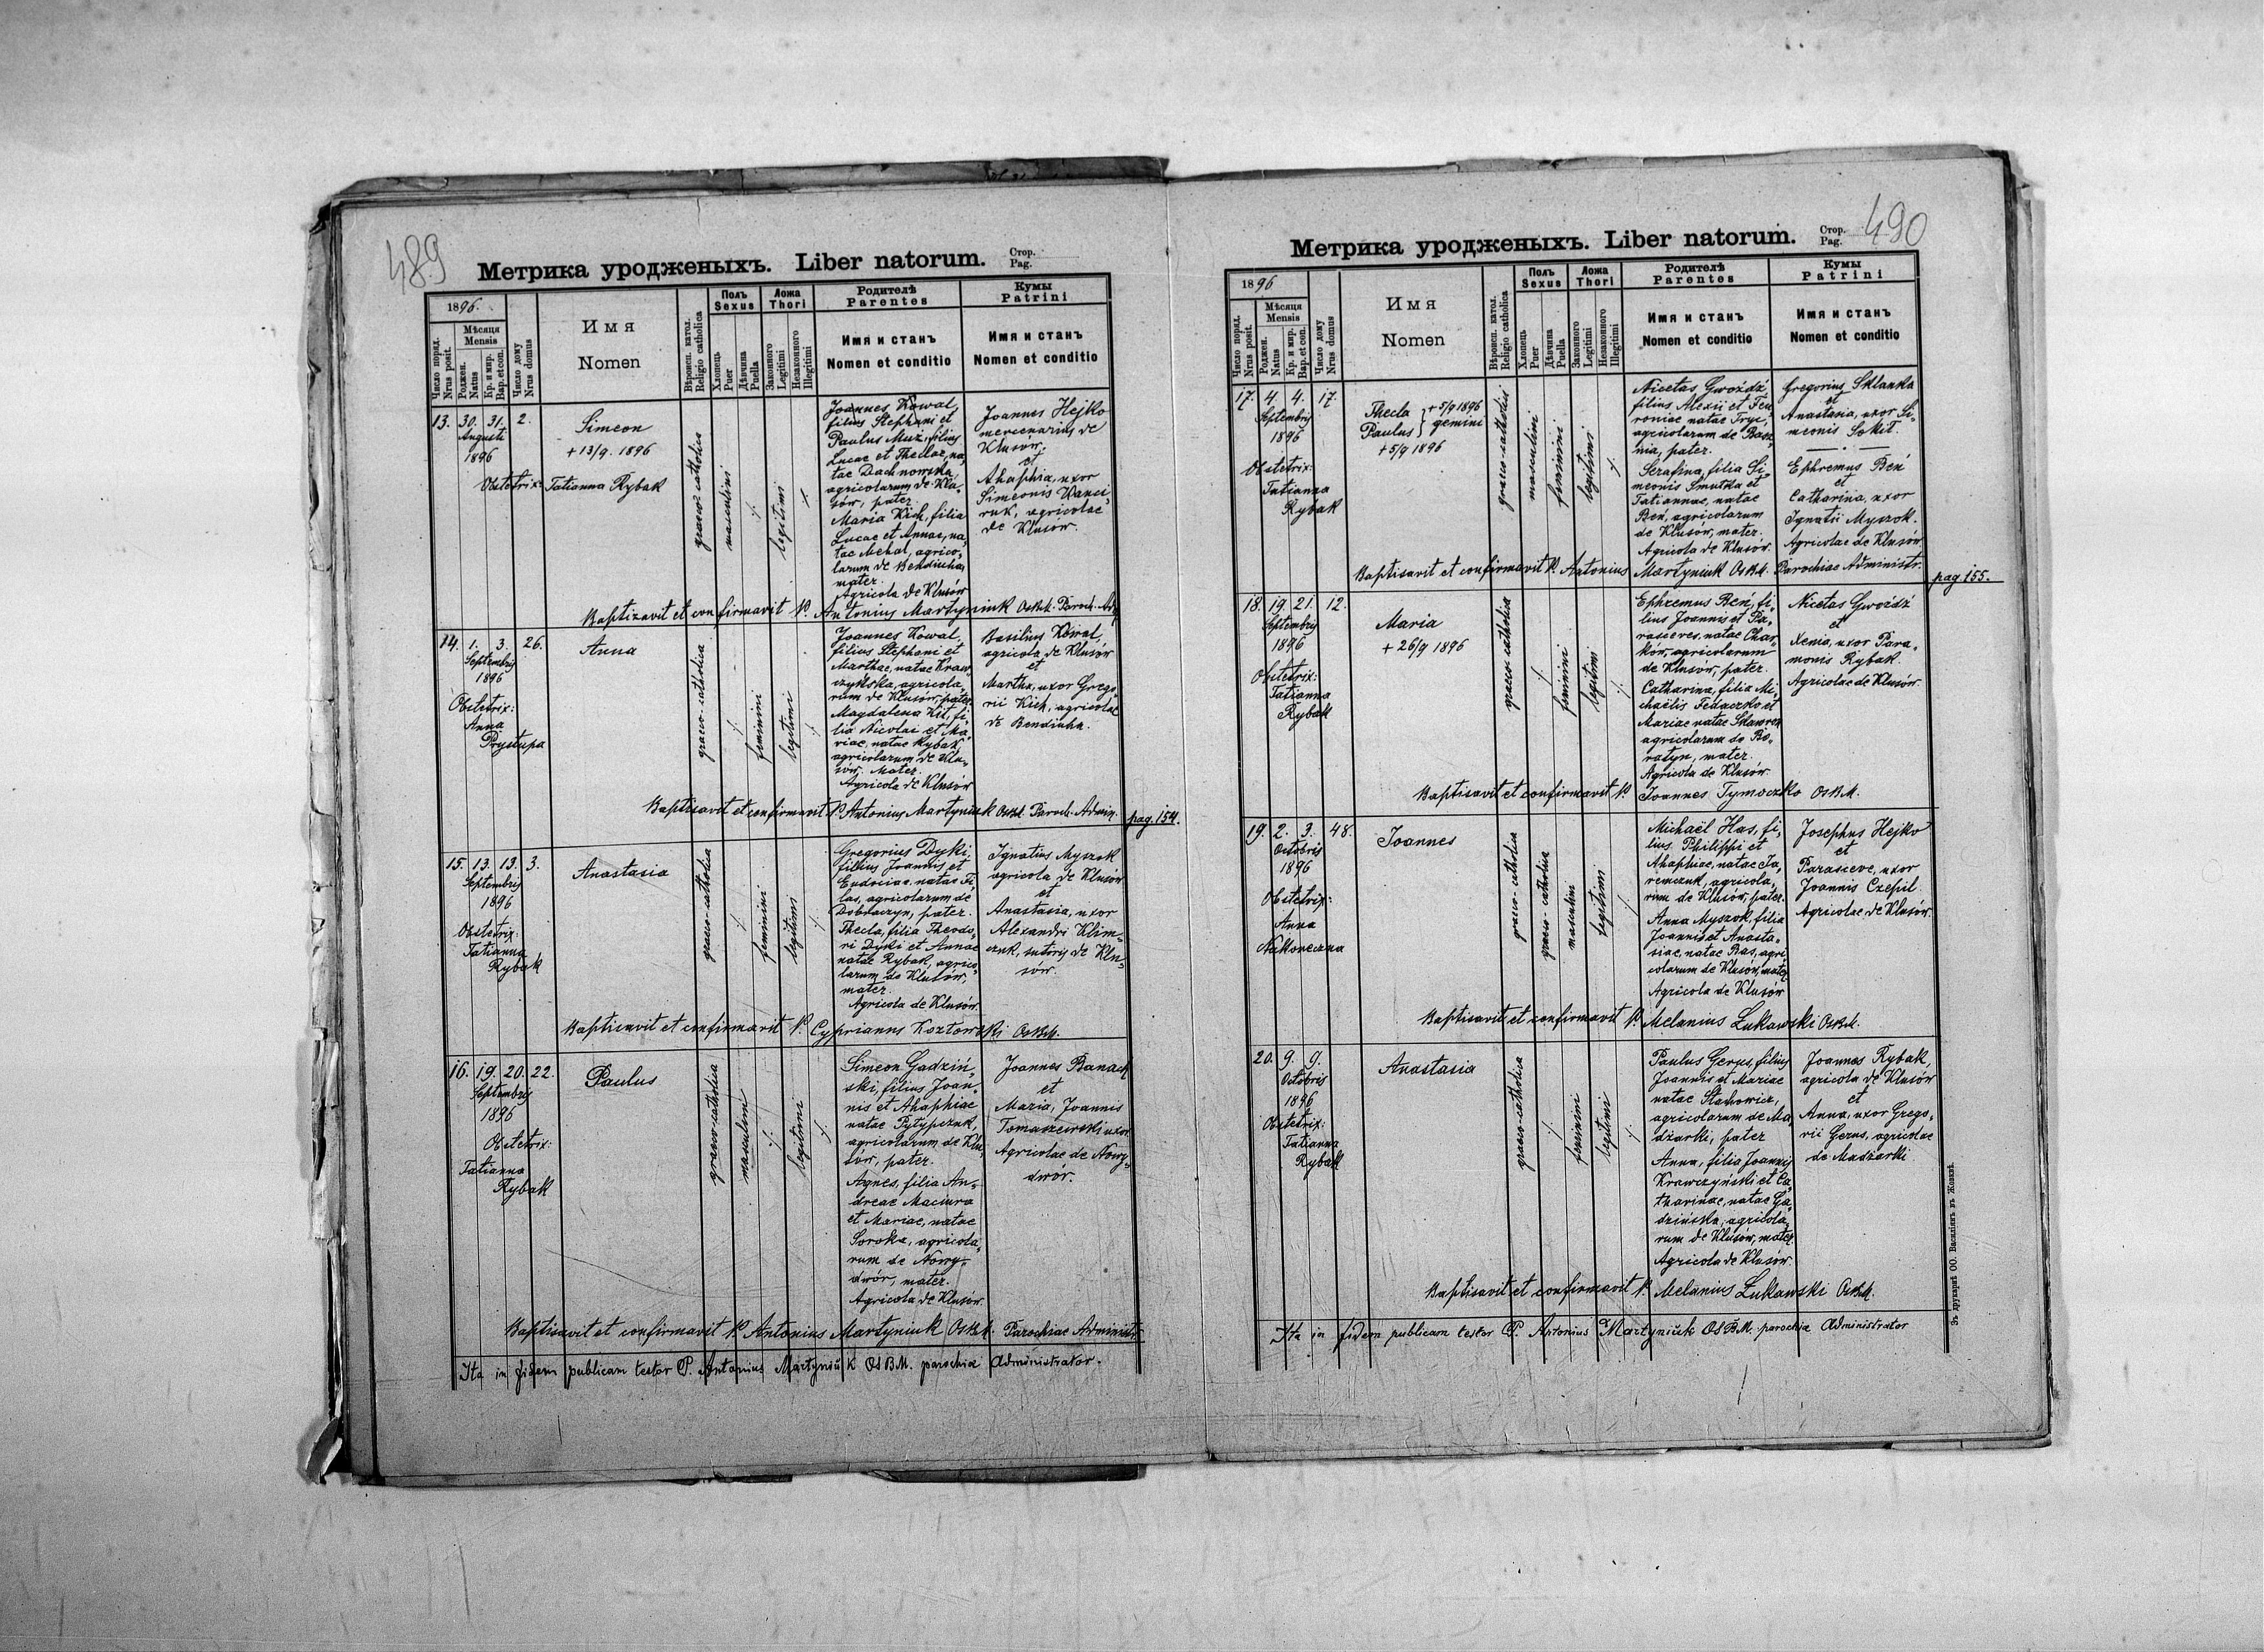 489
Метрика уродженыхъ. Liber natorum.
Стор.
Pag.
1896.
Число поряд.
Nrus posit.
Мѣсяця
Mensis
Роджен.
Natus
Кр. и мир.
Bap. et con.
Число дому
Nrus domus
Имя
Nomen
Вѣроисп. катол.
Religio catholica
Полъ
Sexus
Хлопець
Puer
Дѣвчина
Puella
Ложа
Thori
Законного
Legitimi
Незаконного
Illegitimi
Родителѣ
Parentes
Имя и станъ
Nomen et conditio
Кумы
Patrini
Имя и станъ
Nomen et conditio
13. 30. 31. 2.
Augusti
1896
Simeon
+ 13/9. 1896
Obstetrix: Tatianna Rybak
graeco-catholica
masculini
legitimi
Joannes Kowal,
filius Stephani et
Paulus Muz, filius
Lucae et Theclae, na-
tae Dachnowska
agricolarum de Klu-
sów, pater.
Maria Kich, filia
Lucae et Annae, na-
tae Mehal, agrico-
larum de Bendiucha
mater.
Agricola de Klusów
Joannes Hejko
mercenarius de
Klusów,
et
Ahaphia, uxor
Simeonis Wanci-
ruk, agricolae
de Klusów.
Baptizavit et confirmavit P. Antonius Martyniuk OsBM. Paroch. Adm
14. 1. 3. 26.
Septembris
1896
Obstetrix:
Anna
Prystupa
Anna
graeco-catholica
feminini
legitimi
Joannes Kowal,
filius Stephani et
Marthae, natae Kraw-
czyńska, agricola-
rum de Klusów, pater
Magdalena Kit, fi-
lia Nicolai et Ma-
riae, natae Rybak,
agricolarum de Klu-
sów, Mater.
Agricola de Klusów
Basilius Kowal,
agricola de Klusów
et
Martha, uxor Grego-
rii Kich, agricolae
de Bendiucha.
Baptisavit et confirmavit P. Antonius Martyniuk OsBM. Paroch. Admin.
pag. 154.
15. 13. 13. 3.
Septembris
1896
Obstetrix:
Tatianna
Rybak
Anastasia
graeco-catholica
feminini
legitimi
Gregorius Dyki,
filius Joannis et
Eudociae natae Fi-
las, agricolarum de
Dobraczyn, pater.
Thecla, filia Theodo-
ri Dyki et Annae
natae Rybak, agrico-
larum de Klusów,
mater.
Agricola de Klusów
Ignatius Myszok
agricola de Klusów
et
Anastasia, uxor
Alexandri Klim-
czuk, sutoris de Klu-
sów.
Baptisavit et confirmavit P. Cyprianus Kozłowski OsBM.
16. 19. 20. 22.
Septembris
1896
Obstetrix:
Tatianna
Rybak
Paulus
graeco-catholica
masculini
legitimi
Simeon Gadziń-
ski, filius Joan-
nis et Ahaphiae
natae Pytypczuk,
agricolarum de Klu-
sów, pater.
Agnes, filia An-
dreae Maciura
et Mariae, natae
Soroka, agricola-
rum de Nowy-
dwór, mater.
Agricola de Klusów.
Joannes Banach
et
Maria, Joannis
Tomaszewski uxor
Agricolae de Nowy-
dwór.
Baptisavit et confirmavit P. Antonius Martyniuk OsBM. Parochiae Administr.
Ita in fidem publicam testor P. Antonius Martyniŭk OSBM. parochiæ Administrator.
490
Метрика уродженыхъ. Liber natorum.
Стор.
Pag.
1896
Число поряд.
Nrus posit.
Мѣсяця
Mensis
Роджен.
Natus
Кр. и мир.
Bap. et con.
Число дому
Nrus domus
Имя
Nomen
Вѣроисп. катол.
Religio catholica
Полъ
Sexus
Хлопець
Puer
Дѣвчина
Puella
Ложа
Thori
Законного
Legitimi
Незаконного
Illegitimi
Родителѣ
Parentes
Имя и станъ
Nomen et conditio
Кумы
Patrini
Имя и станъ
Nomen et conditio
17. 4. 4. 17.
Septembris
1896
Obstetrix:
Tatianna
Rybak
Thecla + 5/9 1896
Paulus gemini
+ 5/9 1896
graeco-catholici
masculini
feminini
legitimi
Nicetas Gwoźdź
filius Alexii et Feu-
roniae natae Tryc,
agricolarum de
pater.
Serafina, filia Si-
meonis Smutka et
Tatiannae, natae
Beń, agricolarum
de Klusów, mater.
Agricola de Klusów
Gregorius Sklanka
et
Anastasia, uxor Si-
meonis Sokit.
Ephremus Beń
et
Catharina, uxor
Ignatii Myszok.
Agricolae de Klusów
Baptisavit et confirmavit P. Antonius Martyniuk OsBM. Parochiae Administr.
pag. 155.
18. 19. 21. 12.
Septembris
1896
Obstetrix:
Tatianna
Rybak
Maria
+ 26/9 1896
graeco-catholica
feminini
legitimi
Ephremus Beń, fi-
lius Joannis et Pa-
rasceves, natae Char-
kow, agricolarum
de Klusów, pater.
Catharina, filia Mi-
chaëlis Fedaczko et
Mariae natae
agricolarum de Bo-
ratyn, mater.
Agricola de Klusów
Nicetas Gwoźdź
et
Xenia, uxor Para-
monis Rybak.
Agricolae de Klusów.
Baptisavit et confirmavit P. Joannes Tymoczko OsBM.
19. 2. 3. 48.
Octobris
1896
Obstetrix:
Anna
Nakoneczna
Joannes
graeco-catholica
graeco-catholica
masculini
legitimi
Michaël Has, fi-
lius Philippi et
Ahaphiae, natae Ja-
remczuk, agricola-
rum de Klusów, pater.
Anna Myszok, filia
Joannis et Anasta-
siae, natae Ras, agri-
colarum de Klusów, mater
Agricola de Klusów
Josephus Hejko
et
Parasceve, uxor
Joannis Czepil.
Agricolae de Klusów.
Baptisavit et confirmavit P. Melanius Łukawski OsBM.
20. 9. 9.
Octobris
1896
Obstetrix:
Tatianna
Rybak
Anastasia
graeco-catholica
feminini
legitimi
Paulus Gerus, filius
Joannis et Mariae
natae Stachowicz,
agricolarum de Ma-
dżarki, pater
Anna, filia Joannis
Krawczyński et Ca-
tharinae, natae Ga-
dzińska, agricola-
rum de Klusów, mater.
Agricola de Klusów.
Joannes Rybak,
agricola de Klusów
et
Anna, uxor Grego-
rii Gerus, agricolae
de Madżarki.
Baptisavit et confirmavit P. Melanius Łukawski OsBM.
Ita in fidem publicam testor P. Antonius Martyniŭk OSBM. parochiæ Administrator
Зъ друкарнѣ ОО. Василіянъ въ Жовквѣ.